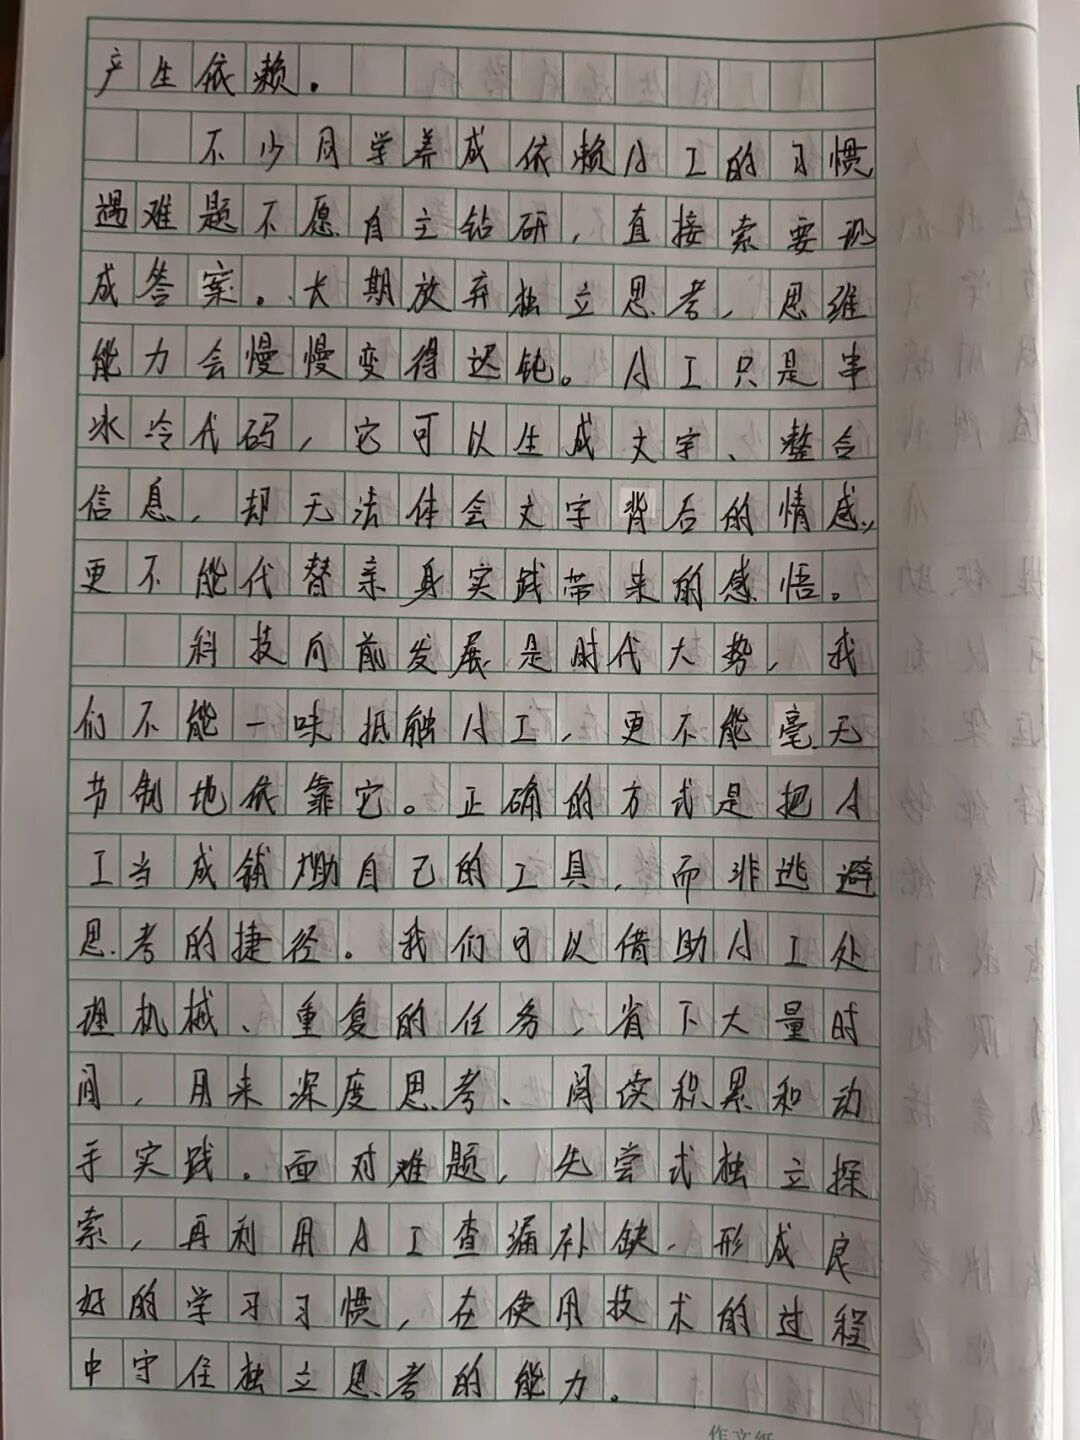 产生依赖。
不少同学养成依赖AI的习惯
遇难题不愿自主钻研，直接索要现
成答案。长期放弃独立思考，思维
能力会慢慢变得迟钝。AI只是串
冰冷代码，它可以生成文字、整合
信息，却无法体会文字背后的情感，
更不能代替亲身实践带来的感悟。
科技向前发展是时代大势，我
们不能一味抵触AI，更不能毫无
节制地依靠它。正确的方式是把A
I当成辅助自己的工具，而非逃避
思考的捷径。我们可以借助AI处
理机械、重复的任务，省下大量时
间，用来深度思考、阅读积累和动
手实践。面对难题，先尝试独立探
索，再利用AI查漏补缺，形成良
好的学习习惯，在使用技术的过程
中守住独立思考的能力。
作文纸